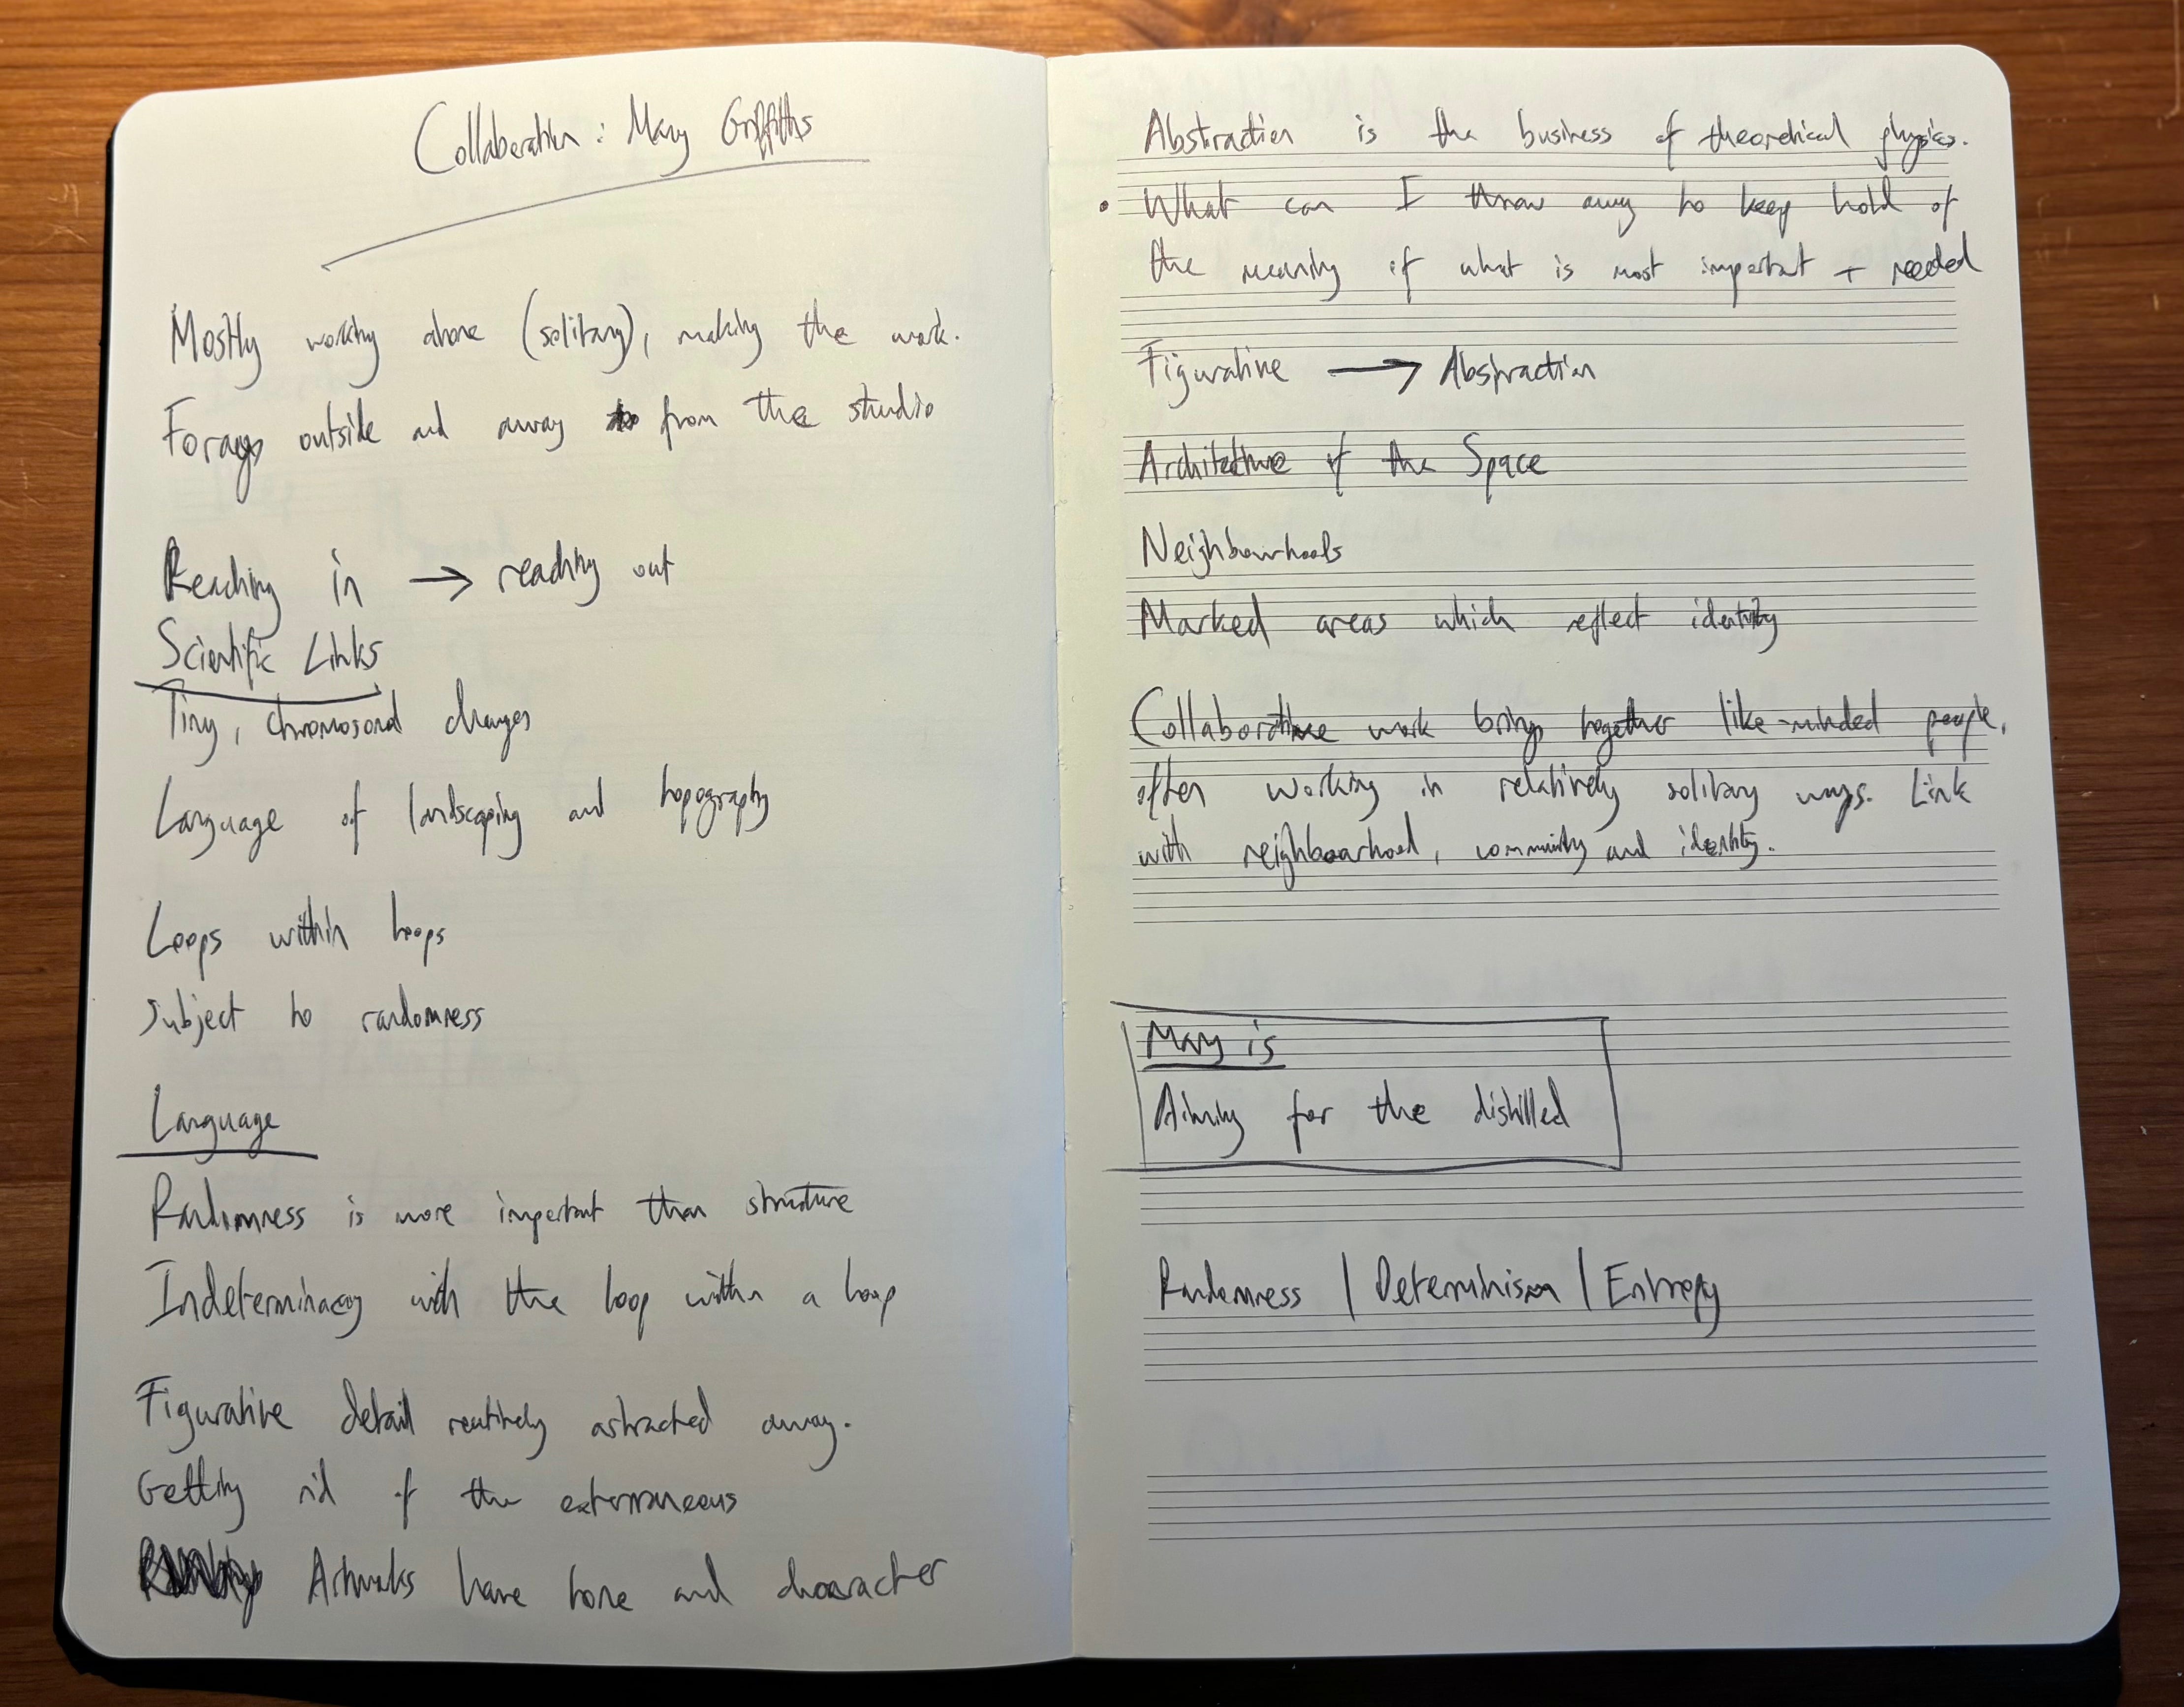 Collaboration: Mary Griffiths
Mostly working alone (solitary), making the work.
Forays outside and away from the studio
Reaching in → reaching out
Scientific Links
Tiny, chromosonal changes
Language of landscaping and topography
Loops within loops
Subject to randomness
Language
Randomness is more important than structure
Indeterminacy with the loop within a loop
Figurative detail routinely astracted away.
Getting rid of the
Artworks have tone and character
Abstraction is the business of theoretical physics.
• What can I throw away to keep hold of
the meaning of what is most important + needed
Figurative → Abstraction
Architecture of the Space
Neighbourhoods
Marked areas which reflect identity
Collaborative work brings together like-minded people,
often working in relatively solitary ways. Link
with neighbourhood, community and identity.
Mary is
Aiming for the distilled
Randomness | Determinism | Entropy